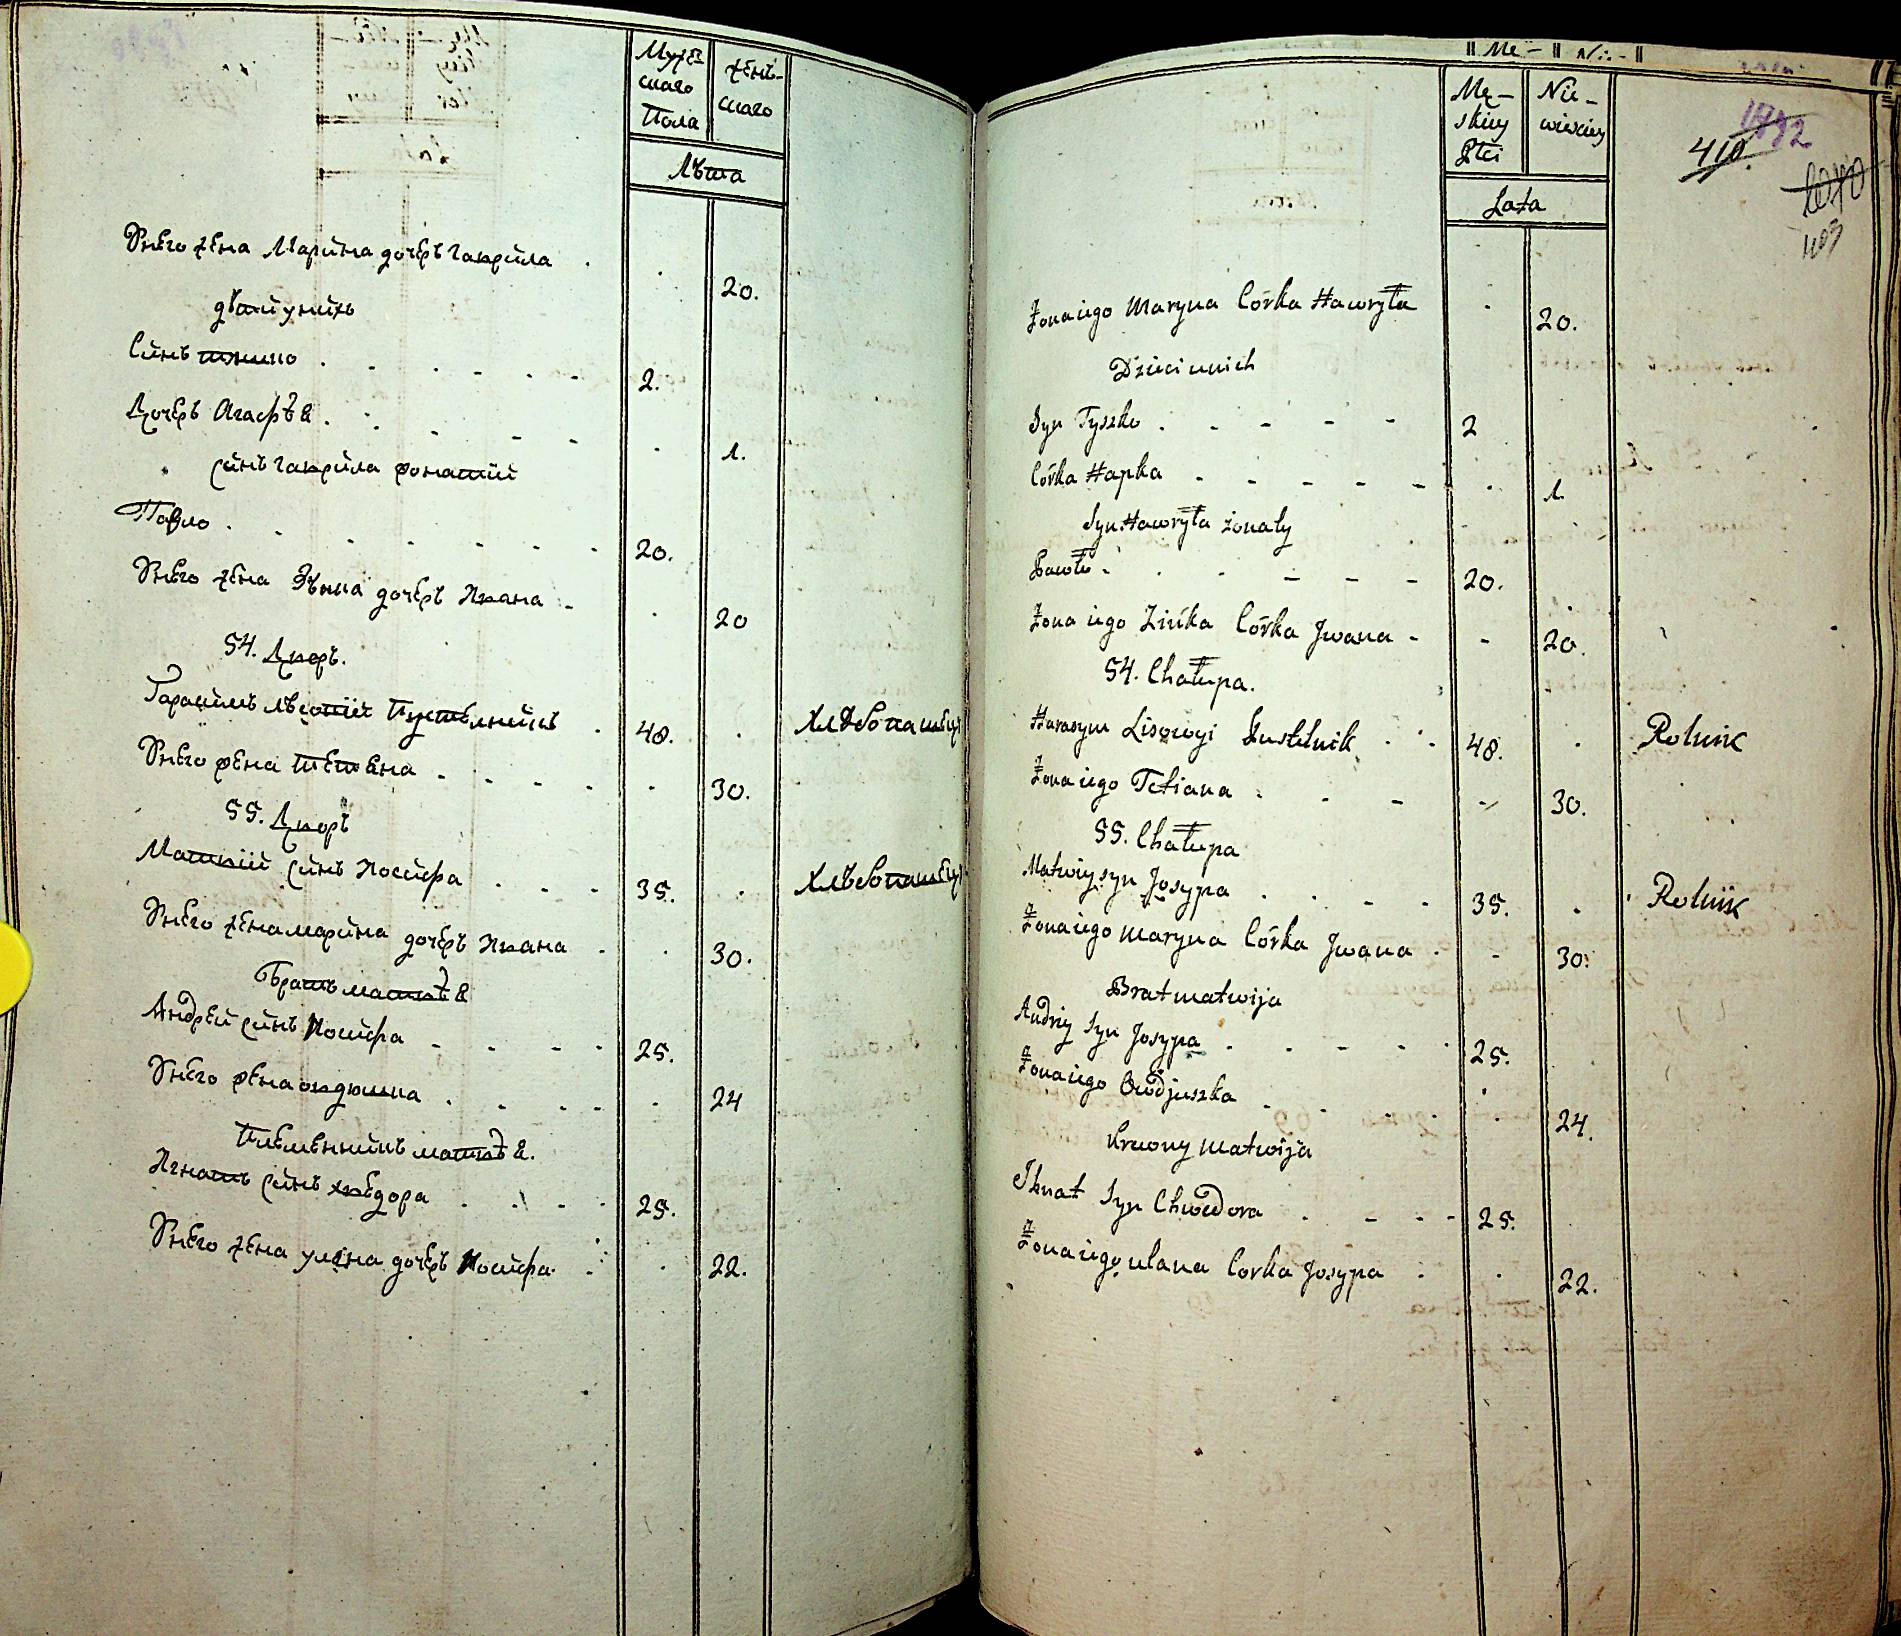 Мужес
каго
Пола
женъ-
скаго
Лѣта
Унего жена Марина дочерь Гаврила . . 20.
дѣти унихъ
Синъ тишко . . . . . 2.
Дочерь Агафѣя . . . . . . 1.
синъ Гаврила жонатій
Павло . . . . . . 20.
Унего жена Зѣнка дочерь Ивана - . 20
54. Дворъ.
Гарасимъ лѣсовій Пустелникъ . 48. . Хлѣбопашецъ
Унего жена тетяна . . . . . 30.
55. Дворъ
Матвій синъ Иосифа . . . 35. . Хлѣбопашецъ
Унего жена марина дочерь Ивана . . 30.
Братъ матвѣя
Андрей синъ Иосифа - . . . 25.
Унего жена овдюшка . . . . . 24
Племѣнникъ матвѣя.
Игнатъ синъ хведора . . . . 25.
Унего жена уляна дочерь Иосифа . . 22.
Mę- Ni-
Mę-
skiey
Płci
Nie-
wieściey
Lata
1892
410.
403
Żona iego Maryna Córka Hawryła - 20.
Dzieci unich
Syn Tyszko . . - - - 2
Córka Hapka - - - - - . 1.
Syn Hawryła żonaty
Pawło - . . - - - 20.
Żona iego Zińka Córka Jwana - - 20.
54. Chałupa.
Harasym Lisowyi Pustelnik . . 48. . Rolnik
Żona iego Tetiana . . - - 30.
55. Chałupa
Matwiy syn Josypa . . . - . 35. . Rolnik
Żona iego Maryna Córka Jwana . - 30.
Brat matwija
Andriy Syn Josypa . . . . . 25.
Żona iego Owdjuszka . . . . . 24.
krewny matwija
Ihnat Syn Chwedora . - . - 25.
Żona iego ulana Corka Josypa . . 22.